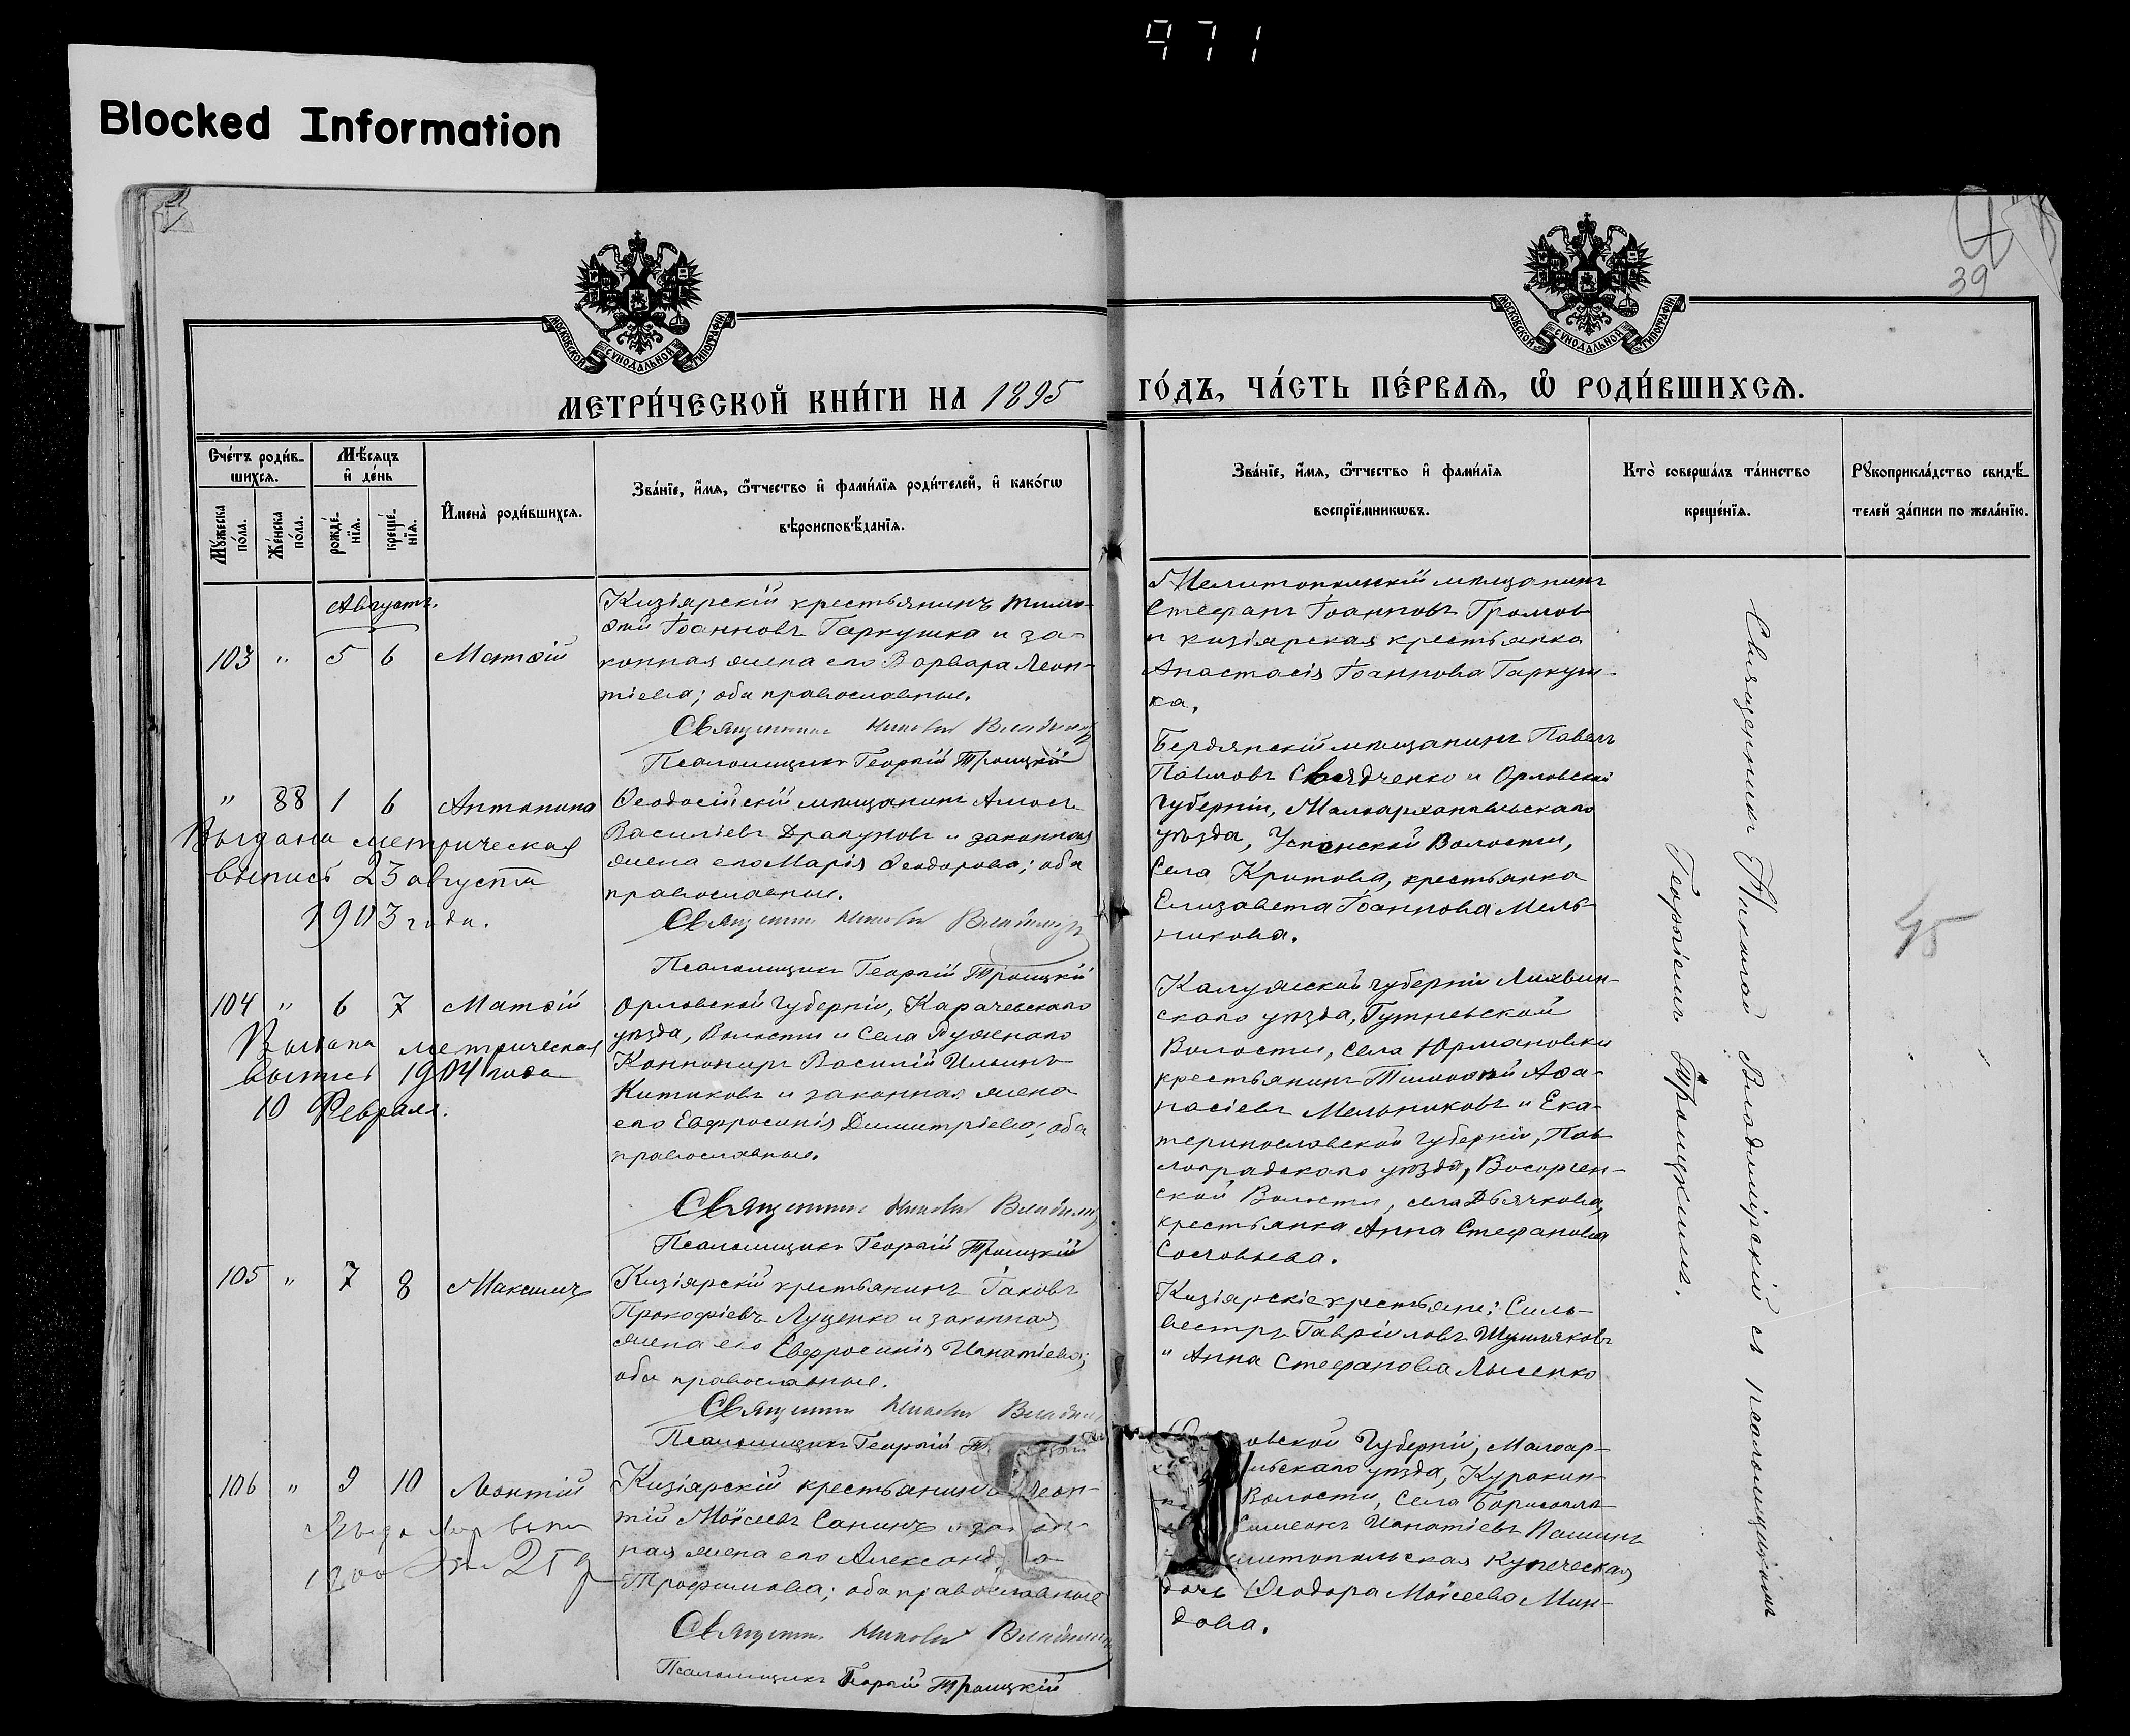 971
Blocked Information
39
МОСКОВСКОЙ СУНОДАЛЬНОЙ ТИПОГРАФІИ
МОСКОВСКОЙ СУНОДАЛЬНОЙ ТИПОГРАФІИ
МЕТРИ́ЧЕСКОЙ КНИ́ГИ НА 1895
ГО́ДЪ, ЧА́СТЬ ПЕ́РВАѦ, Ѡ҆ РОДИ́ВШИХСѦ.
Сче́тъ роди́в-
шихсѧ.
Мѣ́сѧцъ
и҆ де́нь
Мꙋ́жеска
по́ла.
Же́нска
по́ла.
рожде́-
нїѧ.
креще́-
нїѧ.
И҆мена̀ роди́вшихсѧ.
Зва́нїе, и҆́мѧ, ѻ҆́тчество и҆ фами́лїѧ роди́телей, и҆ како́гѡ
вѣроисповѣ́данїѧ.
Зва́нїе, и҆́мѧ, ѻ҆́тчество и҆ фами́лїѧ
воспрїе́мникѡвъ.
Кто̀ соверша́лъ та́инство
креще́нїѧ.
Рꙋкоприкла́дство свидѣ́-
телей за́писи по жела́нїю.
Августъ.
103 " 5 6 Матѳій
Кизіярскій крестьянинъ Тимо-
ѳей Іоанновъ Гаркушка и за-
конная жена его Варвара Леон-
тіева; оба православные.
Священникъ Николай
Псаломщикъ Георгій Троицкій
Мелитопольскій мѣщанинъ
Стефанъ Іоанновъ Громов
и кизіярская крестьянка
Анастасія Іоаннова Гаркуш-
ка.
" 88 1 6 Антонина
Выдана метрическая
выпись 23 августа
1903 года.
Ѳеодосійскій мѣщанинъ Амосъ
Василіевъ Драгуновъ и законная
жена его Марія Ѳеодорова; оба
православные.
Священникъ Николай
Псаломщикъ Георгій Троицкій
Бердянскій мѣщанинъ Павелъ
Павловъ и Орловской
Губерніи, Малоархангельскаго
уѣзда, Успенской Волости,
Села Критова, крестьянка
Елизавета Іоаннова Мель-
никова.
104 " 6 7 Матѳій
Выдана метрическая
выпись 1914 года
10 Февраля.
Орловской Губерніи, Карачевскаго
уѣзда, Волости и Села Руженаго
Канониръ Василій Ильинъ
Китиковъ и законная жена
его Евфросинія Димитріева; оба
православные.
Священникъ Николай
Псаломщикъ Георгій Троицкій
Калужской губерніи Лихвин-
скаго уѣзда,
Волости, села
крестьянинъ Тимоѳей Аѳа-
насіевъ Мельниковъ и Ека-
теринославской Губерніи, Пав-
лоградскаго уѣзда,
ской Волости, села Дьячкова,
крестьянка Анна Стефанова
Соловьева.
105 " 7 8 Максимъ
Кизіярскій крестьянинъ Іаковъ
Прокофіевъ Луценко и законная
жена его Евфросинія Игнатіева;
оба православные.
Священникъ Николай
Псаломщикъ Георгій
Кизіярскіе крестьяне: Силь-
вестръ Гавріиловъ Шумляковъ
и Анна Стефанова Лысенко
106 " 9 10 Леонтій
1900 25
Кизіярскій крестьянинъ Леон-
тій Моѵсеевъ Санинъ и закон-
ная жена его Александра
Трофимова; оба православные
Священникъ Николай
Псаломщикъ Георгій Троицкій
овской Губерніи, Малоар-
льскаго уѣзда, Куракин-
Волости, Села
Симеонъ Игнатіевъ Пашинъ
литопольская Купеческая
дочь Ѳеодора Моѵсеева Мин-
дова.
Священникъ Николай Владимірскій съ псаломщикомъ
Георгіемъ Троицкимъ.
45